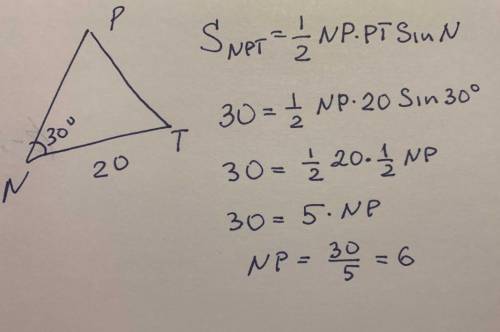 P
30°
N
20
T
S_NPT = 1/2 NP · PT Sin N
30 = 1/2 NP · 20 Sin 30°
30 = 1/2 20 · 1/2 NP
30 = 5 · NP
NP = 30/5 = 6